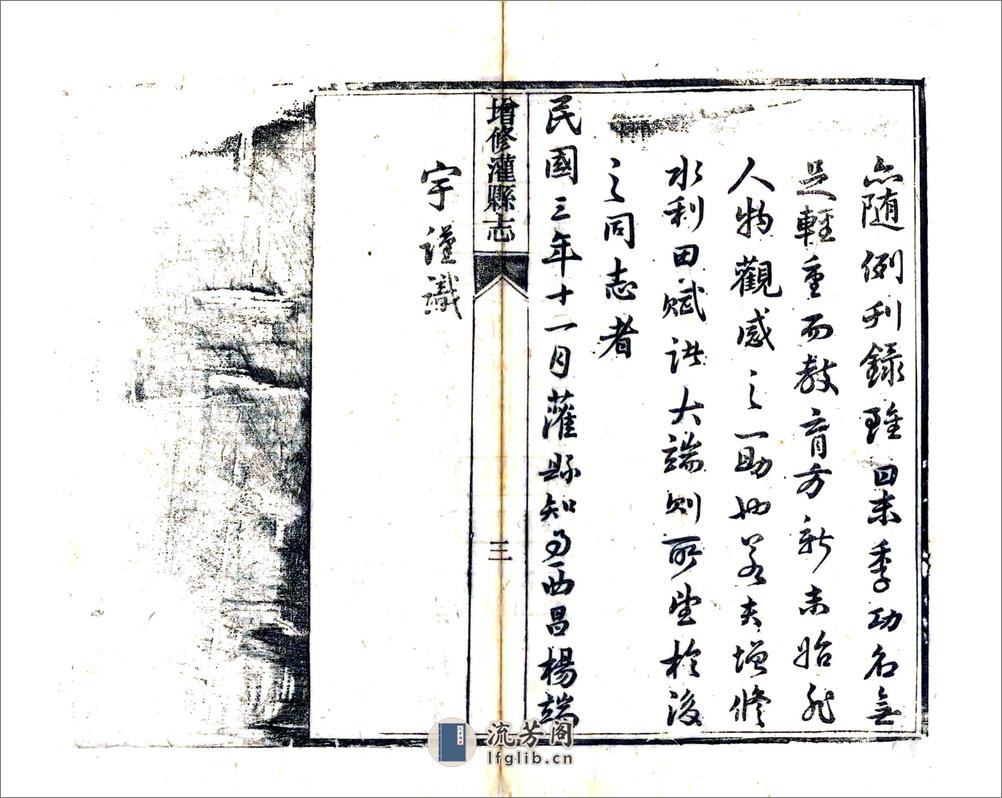 亦隨例刊錄雖曰末季功名無
足輕重而教育方新未始非
人物觀感之一助也若夫增修
水利田賦諸大端則所望於後
之同志者
民國三年十二月灌縣知事西昌楊端
宇謹識
增修灌縣志
三
流芳阁
lfglib.cn